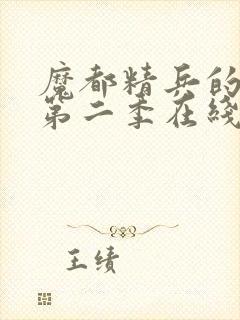 魔都精兵的
第二季在线
王绩